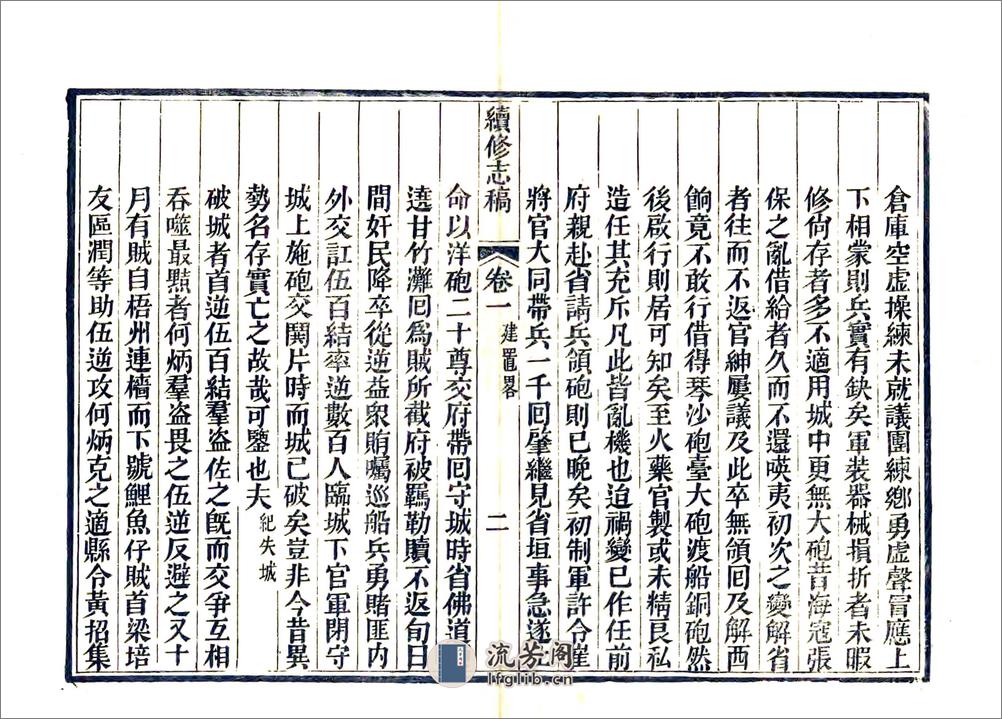 倉庫空虛操練未就議團練鄉勇虛聲冒應上
下相蒙則兵實有缺矣軍裝器械損折者未暇
修尙存者多不適用城中更無大砲昔海寇張
保之亂借給者久而不還𠸄夷初次之變解省
者往而不返官紳屢議及此卒無領囘及解西
餉竟不敢行借得琴沙砲臺大砲渡船銅砲然
後啟行則居可知矣至火藥官製或未精良私
造任其充斥凡此皆亂機也迨禍變已作任前
府親赴省請兵領砲則已晚矣初制軍許令崔
將官大同帶兵一千囘肇繼見省垣事急遂
續修志稿
卷一
建置畧
二
命以洋砲二十尊交府帶囘守城時省佛道
遶甘竹灘囘爲賊所截府被羈勒贖不返旬日
間奸民降卒從逆益衆賄囑巡船兵勇賭匪內
外交訌伍百結率逆數百人臨城下官軍閉守
城上施砲交閧片時而城已破矣豈非今昔異
勢名存實亡之故哉可鑒也夫 紀失城
破城者首逆伍百結羣盜佐之旣而交爭互相
吞噬最黠者何炳羣盜畏之伍逆反避之又十
月有賊自梧州連檣而下號鯉魚仔賊首梁培
友區潤等助伍逆攻何炳克之適縣令黃招集
流芳阁
lfglib.cn